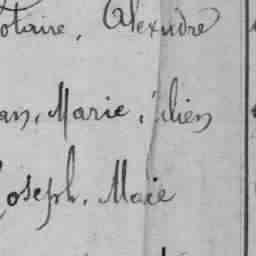 otaire, Alexndre
an, Marie, Julien
Joseph, Maie